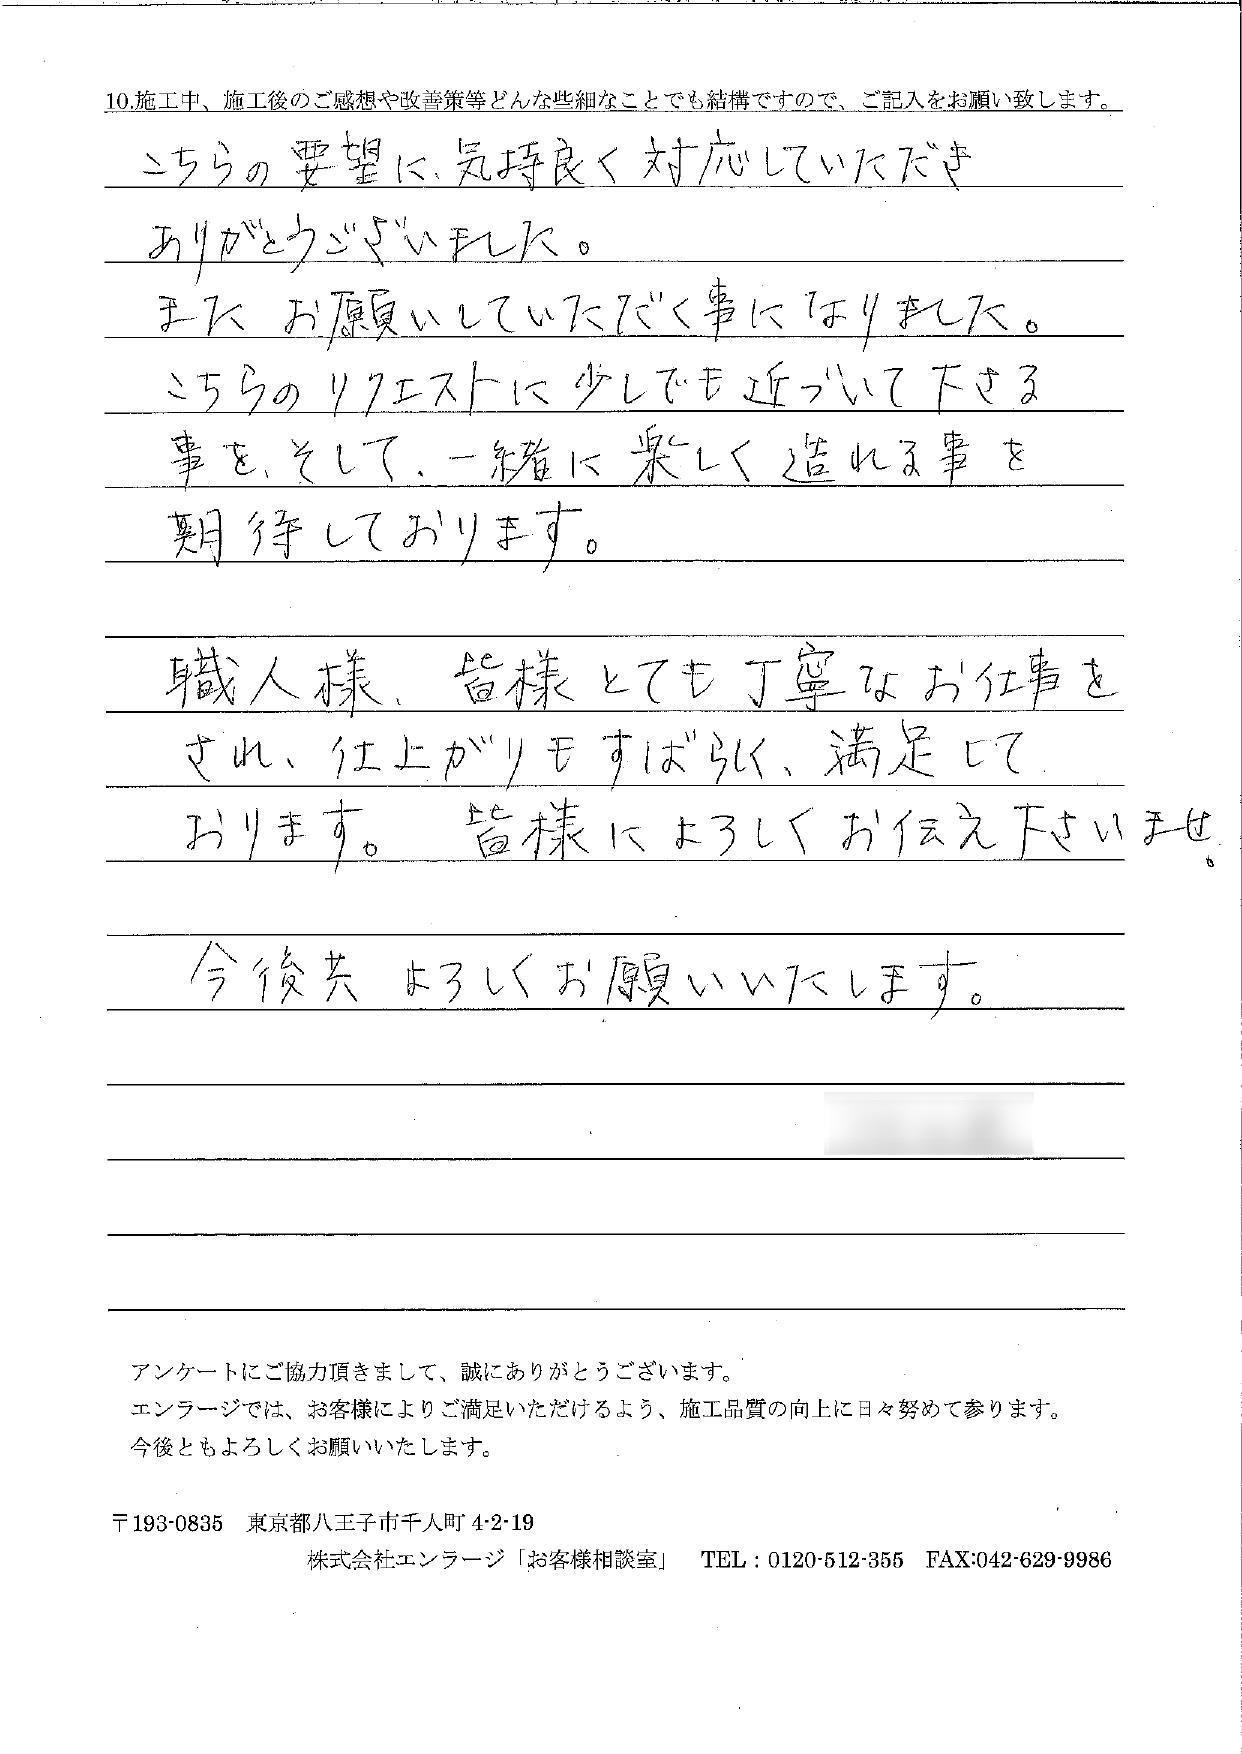 10.施工中、施工後のご感想や改善策等どんな些細なことでも結構ですので、ご記入をお願い致します。
こちらの要望に、気持良く対応していただき
ありがとうございました。
また お願いしていただく事になりました。
こちらのリクエストに少しでも近づいて下さる
事を、そして、一緒に楽しく造れる事を
期待しております。
職人様、皆様とても丁寧なお仕事を
され、仕上がりもすばらしく、満足して
おります。 皆様によろしくお伝え下さいませ。
今後共 よろしくお願いいたします。
アンケートにご協力頂きまして、誠にありがとうございます。
エンラージでは、お客様によりご満足いただけるよう、施工品質の向上に日々努めて参ります。
今後ともよろしくお願いいたします。
〒193-0835 東京都八王子市千人町 4-2-19
株式会社エンラージ「お客様相談室」 TEL：0120-512-355 FAX:042-629-9986